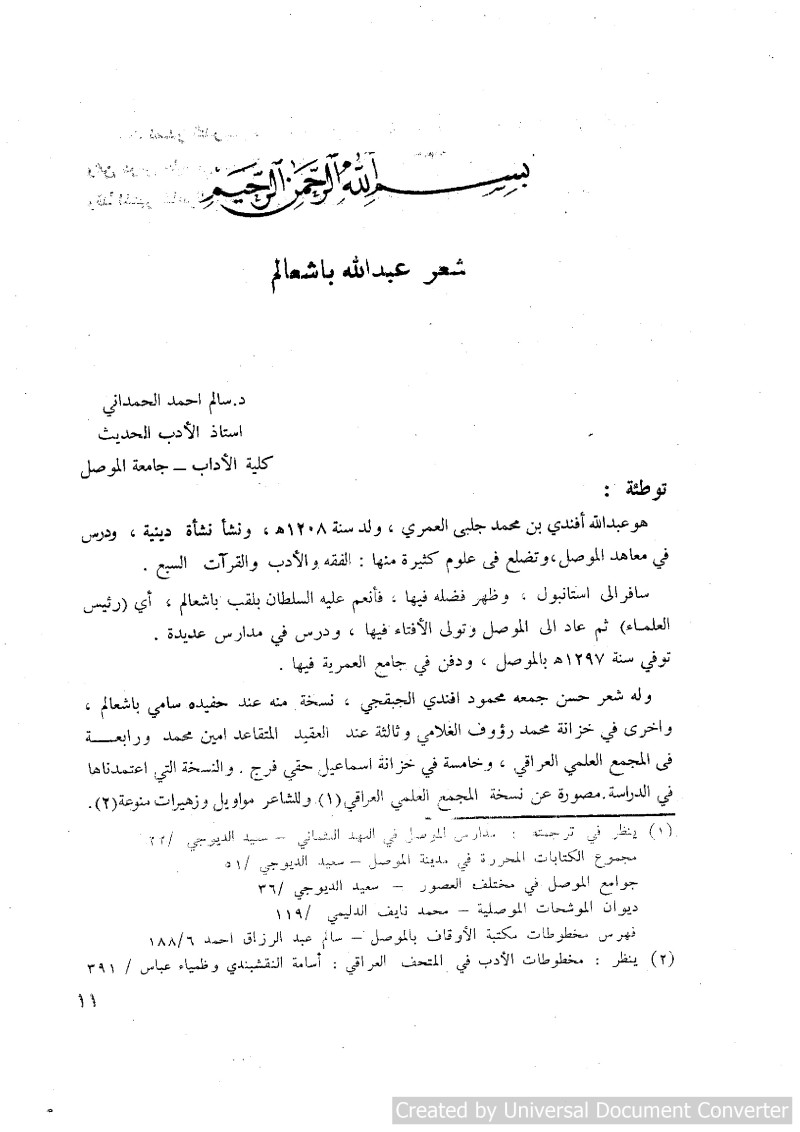 بسم الله الرحمن الرحيم
شعر عبدالله باشعالم
د.سالم احمد الحمداني
استاذ الأدب الحديث
كلية الأداب ــ جامعة الموصل
توطئة :
هو عبدالله أفندي بن محمد جلبى العمري ، ولد سنة ١٢٠٨ه ، ونشأ نشأة دينية ، ودرس
في معاهد الموصل،وتضلع فى علوم كثيرة منها : الفقه والأدب والقرآت السبع .
سافر الى استانبول ، وظهر فضله فيها ، فأنعم عليه السلطان بلقب باشعالم ، أي (رئيس
العلماء) ثم عاد الى الموصل وتولى الأفتاء فيها ، ودرس في مدارس عديدة .
توفي سنة ١٢٩٧ه بالموصل ، ودفن في جامع العمرية فيها .
وله شعر حسن جمعه محمود افندي الجبقجي ، نسخة منه عند حفيده سامي باشعالم ،
واخرى في خزانة محمد رؤوف الغلامي وثالثة عند العقيد المتقاعد امين محمد ورابعـــة
فى المجمع العلمي العراقي ، وخامسة في خزانة اسماعيل حقي فرج . والنسخة التي اعتمدناها
في الدراسة مصورة عن نسخة المجمع العلمي العراقي(١) وللشاعر مواويل وزهيرات منوعة(٢).
(١) ينظر في ترجمته : مدارس الموصل في العهد العثماني – سعيد الديوجي /
مجموع الكتابات المحررة في مدينة الموصل – سعيد الديوجي /٥١
جوامع الموصل في مختلف العصور – سعيد الديوجي /٣٦
ديوان الموشحات الموصلية – محمد نايف الدليمي /١١٩
فهرس مخطوطات مكتبة الأوقاف بالموصل – سالم عبد الرزاق احمد ١٨٨/٦
(٢) ينظر : مخطوطات الأدب في المتحف العراقي : أسامة النقشبندي وظمياء عباس / ٣٩١
١١
Created by Universal Document Converter